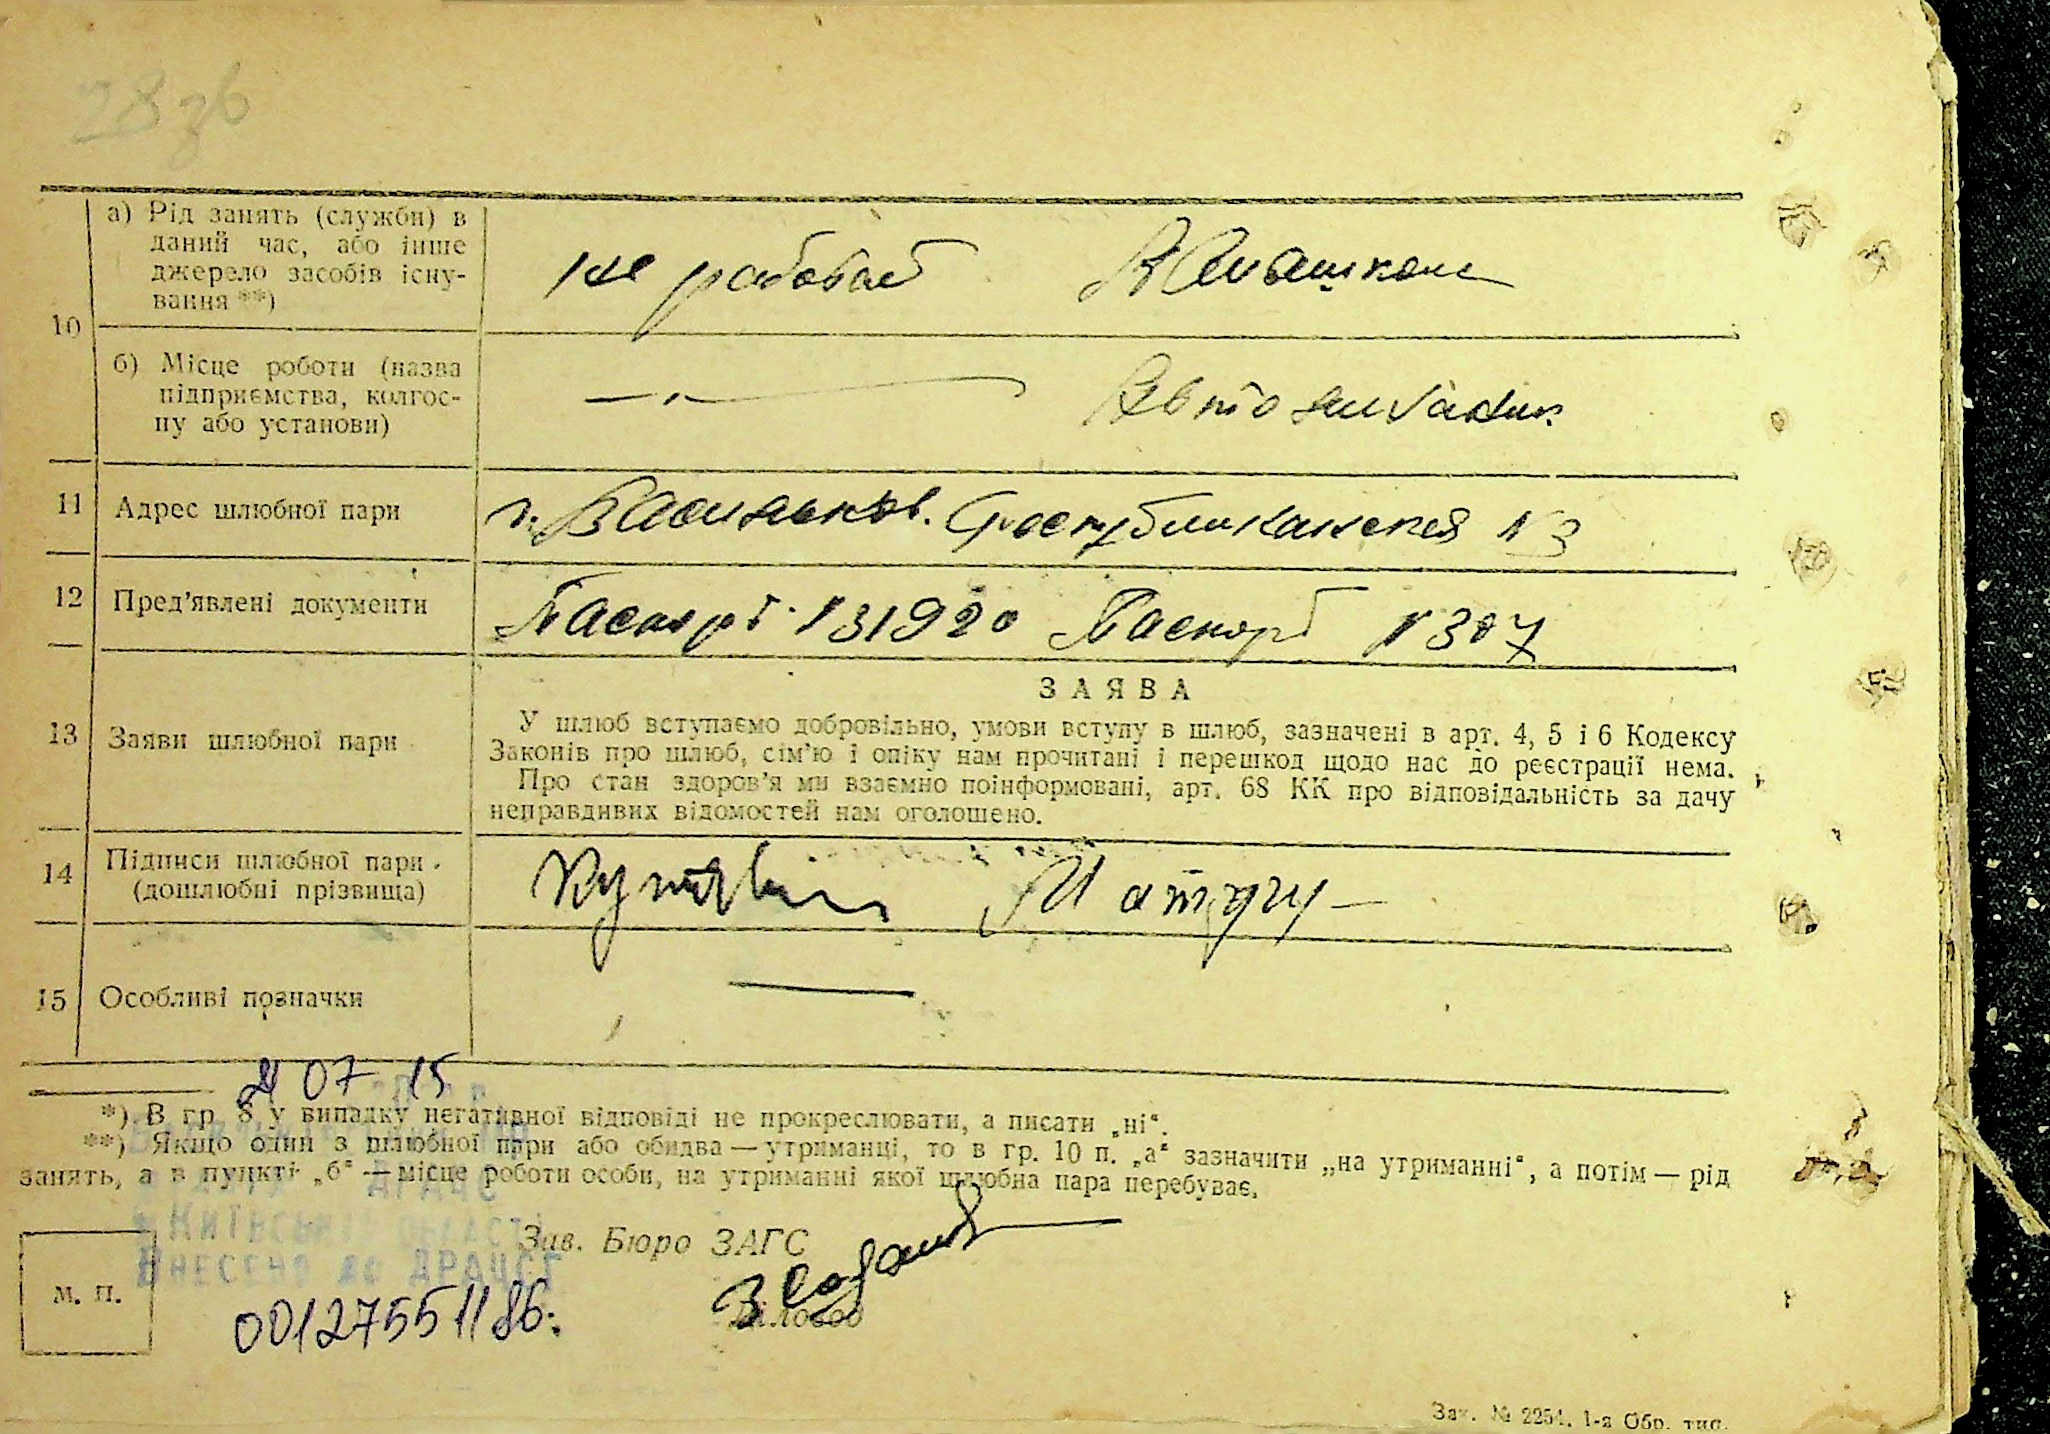 28 зв
10
а) Рід занять (служби) в
даний час, або інше
джерело засобів існу-
вання **)
не работает
б) Місце роботи (назва
підприємства, колгос-
пу або установи)
11 Адрес шлюбної пари
г. Васильков. Республиканская N 3
12 Пред'явлені документи
Паспорт N 31920 Паспорт N 307
13 Заяви шлюбної пари
ЗАЯВА
У шлюб вступаємо добровільно, умови вступу в шлюб, зазначені в арт. 4, 5 і 6 Кодексу
Законів про шлюб, сім'ю і опіку нам прочитані і перешкод щодо нас до реєстрації нема.
Про стан здоров'я ми взаємно поінформовані, арт. 68 КК про відповідальність за дачу
неправдивих відомостей нам оголошено.
14 Підписи шлюбної пари
(дошлюбні прізвища)
15 Особливі позначки
21 07 15
*) В гр. 8 у випадку негативної відповіді не прокреслювати, а писати „ні“.
**) Якщо один з шлюбної пари або обидва — утриманці, то в гр. 10 п. „а“ зазначити „на утриманні“, а потім — рід
занять, а в пункті „б“ — місце роботи особи, на утриманні якої шлюбна пара перебуває.
ДРАЦС
Київській області
Внесено до ДРАЦСГ
Зав. Бюро ЗАГС
М. П.
00127551186.
Діловод
Зак. № 2254. 1-а Обр. тип.